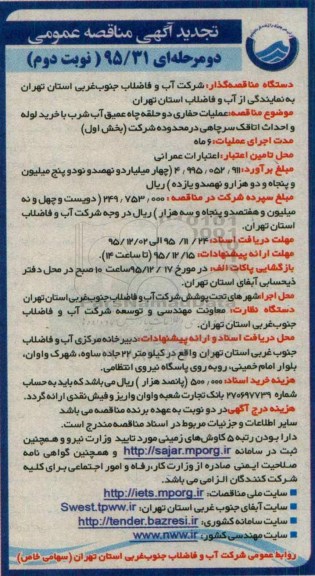 تجدید آگهی مناقصه عمومی
دومرحله‌ای ۹۵/۳۱ ( نوبت دوم)
دستگاه مناقصه‌گذار: شرکت آب و فاضلاب جنوب‌غربی استان تهران
به نمایندگی از آب و فاضلاب استان تهران
موضوع مناقصه: عملیات حفاری دو حلقه چاه عمیق آب شرب با خرید لوله
و احداث اتاقک سرچاهی در محدوده شرکت (بخش اول)
مدت اجرای عملیات: ۶ ماه
محل تامین اعتبار: اعتبارات عمرانی
مبلغ برآورد: ۴,۹۹۵,۰۵۲,۹۱۱ (چهار میلیارد و نهصد و نود و پنج میلیون
و پنجاه و دو هزار و نهصد و یازده ) ریال
مبلغ سپرده شرکت در مناقصه : ۲۴۹,۷۵۳,۰۰۰ (دویست و چهل و نه
میلیون و هفتصد و پنجاه و سه هزار ) ریال در وجه شرکت آب و فاضلاب
استان تهران.
مهلت دریافت اسناد: ۲۴ / ۱۱ / ۹۵ الی ۹۵/۱۲/۰۲
مهلت ارائه پیشنهادات: ۹۵/۱۲/۱۵ (تا ساعت ۱۴)
بازگشایی پاکات الف: در مورخ ۹۵/۱۲/۱۷ ساعت ۱۰ صبح در محل دفتر
ذیحسابی آبفای استان تهران.
محل اجرا: شهرهای تحت پوشش شرکت آب و فاضلاب جنوب‌غربی استان تهران
دستگاه نظارت: معاونت مهندسی و توسعه شرکت آب و فاضلاب
جنوب غربی استان تهران.
محل دریافت اسناد و ارائه پیشنهادات: دبیرخانه مرکزی آب و فاضلاب
جنوب غربی استان تهران واقع در کیلومتر ۲۲ جاده ساوه، شهرک واوان،
بلوار امام خمینی، روبه روی پاسگاه نیروی انتظامی.
هزینه خرید اسناد: ۵۰۰,۰۰۰ (پانصد هزار ) ریال می باشد که باید به حساب
شماره ۲۷۰۶۹۷۷۳۹ بانک تجارت شعبه واوان واریز و فیش نقدی ارائه گردد.
هزینه درج آگهی در دو نوبت به عهده برنده مناقصه می باشد
سایر اطلاعات و جزئیات مربوط در اسناد مناقصه مندرج است.
دارا بودن رتبه ۵ کاوش‌های زمینی مورد تایید وزارت نیرو و همچنین
ثبت در سامانه http://sajar.mporg.ir و همچنین گواهی نامه
صلاحیت ایمنی صادره از وزارت کار، رفاه و امور اجتماعی برای کلیه
شرکت کنندگان الزامی می باشد.
سایت ملی مناقصات: http://iets.mporg.ir
سایت آبفای جنوب غربی استان تهران: Swest.tpww.ir
سایت سامانه کشوری: http://tender.bazresi.ir
سایت مهندسی کشور: www.nww.ir
روابط عمومی شرکت آب و فاضلاب جنوب‌غربی استان تهران (سهامی خاص)